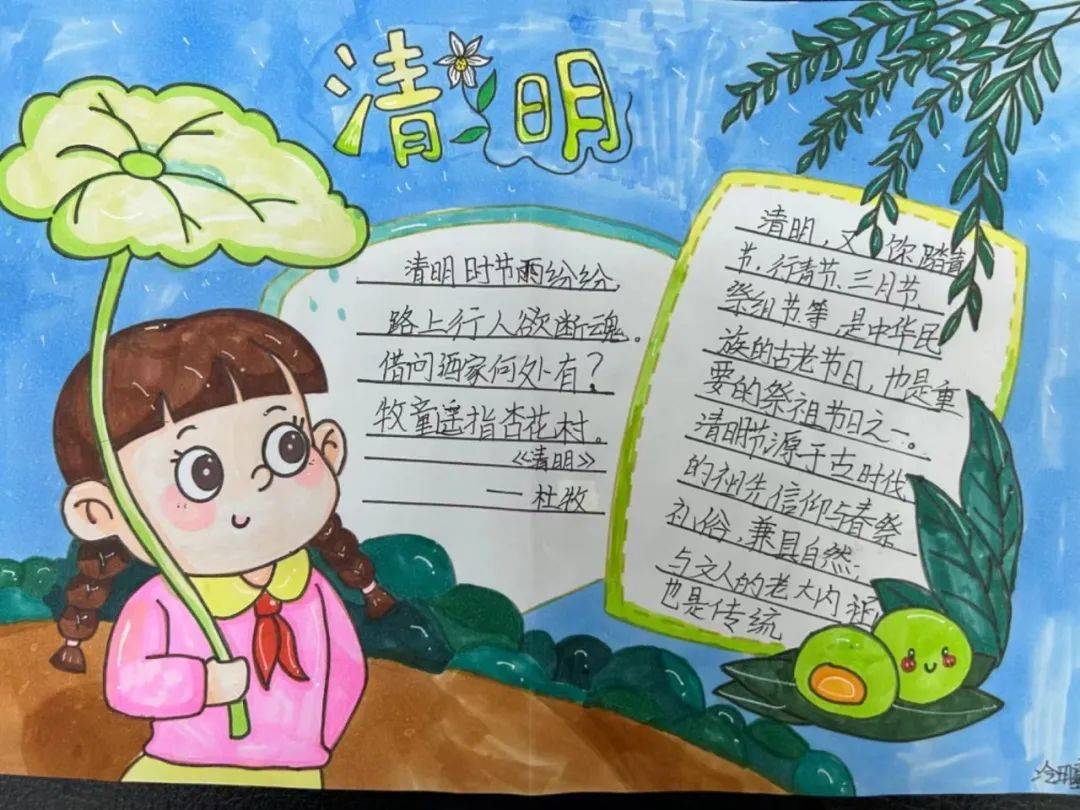 清明
清明时节雨纷纷,
路上行人欲断魂。
借问酒家何处有?
牧童遥指杏花村。
《清明》
— 杜牧
清明,又 踏青
节、行青节、三月节
祭组节等,是中华民
族的古老节日,也是重
要的祭祖节日之一。
清明节源于古时代
的祖先信仰与春祭
礼俗,兼具自然
与文人的老大内
也是传统